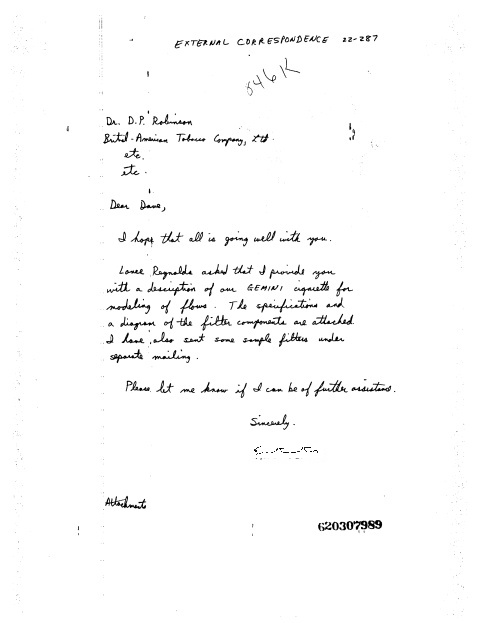 EXTERNAL CORRESPONDENCE 22-287
046K
Dr. D.P. Robinson
British-American Tobacco Company, Ltd.
etc.
etc.
Dear Dave,
I hope that all is going well with you.
Lance Reynolds asked that I provide you
with a description of our GEMINI cigarette for
modeling of flows. The specifications and
a diagram of the filter components are attached.
I have also sent some sample filters under
separate mailing.
Please let me know if I can be of further assistance.
Sincerely.
Attachments
620307989